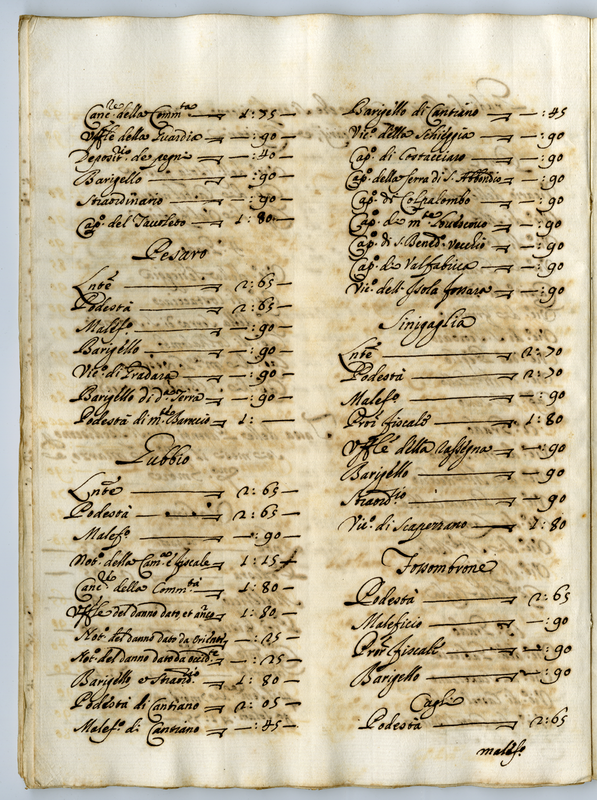 Canc.re della Comm.ta 1:35
Uff.le della Guardia —:90
Deposit.rio de pegni —:40
Barigello —:90
Straordinario —:90
Cap.o del Tavoleto 1:80
Pesaro
Lnte 2:65
Podestà 2:65
Malef.o —:90
Barigello —:90
Vic.o di Gradara —:90
Barigello di d.a Terra —:90
Podestà di m.te Baroccio 1:—
Gubbio
Lnte 2:65
Podestà 2:65
Malef.o —:90
Not.o della Cam.a e fiscale 1:15
Canc.re della Comm.tà 1:80
Uff.le del danno dato, et 1:80
Not.o del danno dato da Oriente —:25
Not.o del danno dato da occid.te —:25
Barigello e Straord.rio 1:80
Podestà di Cantiano 2:05
Malef.o di Cantiano —:45
Barigello di Cantiano —:45
Vic.o della Schieggia —:90
Cap.o di Costacciaro —:90
Cap.o della Serra di S. Abbondio —:90
Cap.o di Colpalombo —:90
Cap.o di m.te —:90
Cap.o di S. Bened.o vecchio —:90
Cap.o di Valfabrica —:90
Vic.o dell'Isola fossara —:90
Sinigaglia
Lnte 2:70
Podestà 2:70
Malef.o —:90
Pror fiscale 1:80
Uff.le della Rassegna —:90
Barigello —:90
Straord.rio —:90
Vic.o di Scapezzano 1:80
Fossombrone
Podestà 2:65
Maleficio —:90
Pror fiscale —:90
Barigello —:90
Cagli
Podestà 2:65
malef.o